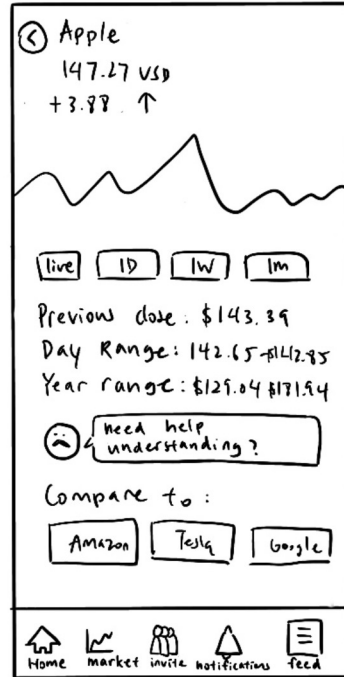 Apple
147.27 USD
+3.88 ↑
live 1D 1W 1m
Previous close: $143.39
Day Range: 142.65-$142.85
Year range: $129.04 $181.94
need help
understanding?
Compare to:
Amazon Tesla Google
Home market invite notifications feed